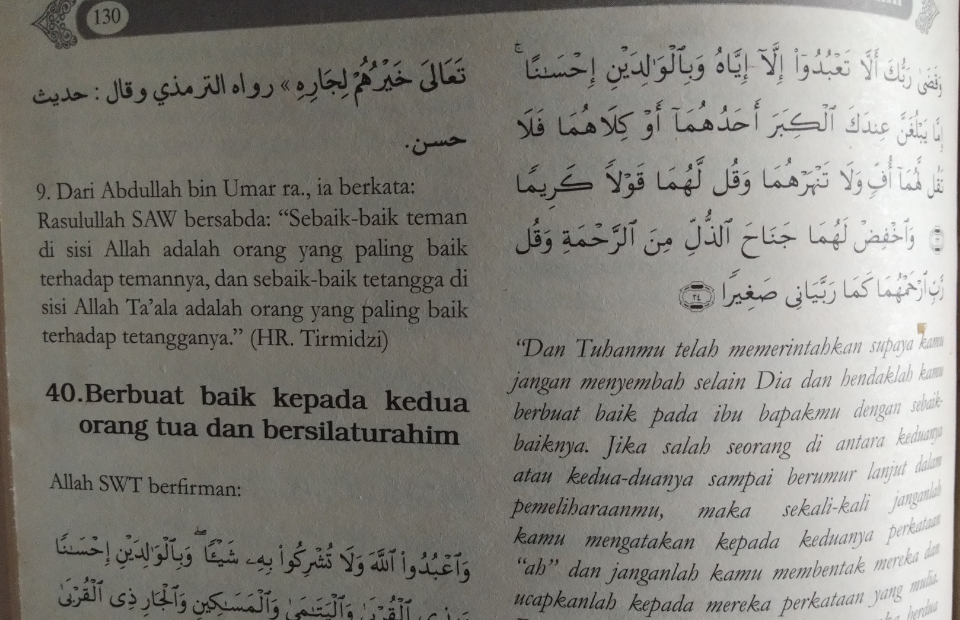 130
تَعَالىَ خَيْرُهُمْ لِجَارِهِ » رواه الترمذي وقال : حديث
حسن.
9. Dari Abdullah bin Umar ra., ia berkata:
Rasulullah SAW bersabda: “Sebaik-baik teman
di sisi Allah adalah orang yang paling baik
terhadap temannya, dan sebaik-baik tetangga di
sisi Allah Ta’ala adalah orang yang paling baik
terhadap tetangganya.” (HR. Tirmidzi)
40.Berbuat baik kepada kedua
orang tua dan bersilaturahim
Allah SWT berfirman:
وَٱعْبُدُوا۟ ٱللَّهَ وَلَا تُشْرِكُوا۟ بِهِۦ شَيْـًٔا ۖ وَبِٱلْوَٰلِدَيْنِ إِحْسَـٰنًا
وَبِذِى ٱلْقُرْبَىٰ وَٱلْيَتَـٰمَىٰ وَٱلْمَسَـٰكِينِ وَٱلْجَارِ ذِى ٱلْقُرْبَىٰ
وَقَضَىٰ رَبُّكَ أَلَّا تَعْبُدُوٓا۟ إِلَّآ إِيَّاهُ وَبِٱلْوَٰلِدَيْنِ إِحْسَـٰنًا ۚ
إِمَّا يَبْلُغَنَّ عِندَكَ ٱلْكِبَرَ أَحَدُهُمَآ أَوْ كِلَاهُمَا فَلَا
تَقُل لَّهُمَآ أُفٍّ وَلَا تَنْهَرْهُمَا وَقُل لَّهُمَا قَوْلًا كَرِيمًا
وَٱخْفِضْ لَهُمَا جَنَاحَ ٱلذُّلِّ مِنَ ٱلرَّحْمَةِ وَقُل
رَّبِّ ٱرْحَمْهُمَا كَمَا رَبَّيَانِى صَغِيرًا ٢٤
“Dan Tuhanmu telah memerintahkan supaya kamu
jangan menyembah selain Dia dan hendaklah kamu
berbuat baik pada ibu bapakmu dengan sebaik-
baiknya. Jika salah seorang di antara keduanya
atau kedua-duanya sampai berumur lanjut dalam
pemeliharaanmu, maka sekali-kali janganlah
kamu mengatakan kepada keduanya perkataan
“ah” dan janganlah kamu membentak mereka dan
ucapkanlah kepada mereka perkataan yang mulia.
berdua